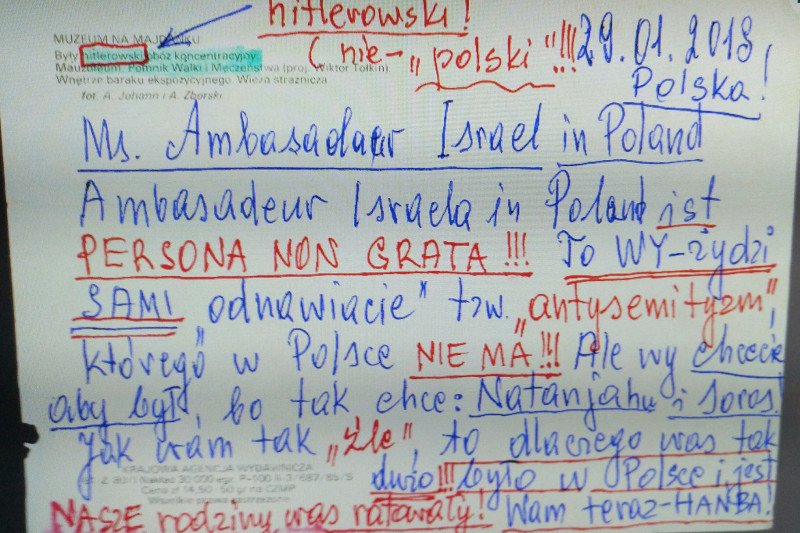 hitlerowski!
(nie-„polski"!!!
29.01.2018,
Polska!
MUZEUM NA MAJDANKU
Były hitlerowski obóz koncentracyjny.
Mauzoleum, Pomnik Walki i Męczeństwa (proj. Wiktor Tołkin).
Wnętrze baraku ekspozycyjnego. Wieża strażnicza
fot. A. Johann i A. Zborski
Ms. Ambasadeur Israel in Poland
Ambasadeur Israela in Poland ist
PERSONA NON GRATA!!! To WY-żydzi
SAMI „odnawiacie" tzw. „antysemityzm",
którego w Polsce NIE MA!!! Ale wy chcecie
aby był, bo tak chce: Natanjahu i Soros!
Jak wam tak „źle", to dlaczego was tak
KRAJOWA AGENCJA WYDAWNICZA
Nakład 30 000 egz.
dużo!!! było w Polsce i jest
Wszelkie prawa zastrzeżone
NASZE rodziny was ratowały! Wam teraz-HAŃBA!